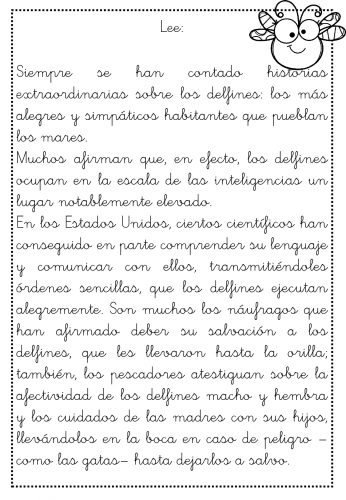 Lee:
Siempre se han contado historias
extraordinarias sobre los delfines: los más
alegres y simpáticos habitantes que pueblan
los mares.
Muchos afirman que, en efecto, los delfines
ocupan en la escala de las inteligencias un
lugar notablemente elevado.
En los Estados Unidos, ciertos científicos han
conseguido en parte comprender su lenguaje
y comunicar con ellos, transmitiéndoles
órdenes sencillas, que los delfines ejecutan
alegremente. Son muchos los náufragos que
han afirmado deber su salvación a los
delfines, que les llevaron hasta la orilla;
también, los pescadores atestiguan sobre la
afectividad de los delfines macho y hembra
y los cuidados de las madres con sus hijos,
llevándolos en la boca en caso de peligro –
como las gatas– hasta dejarlos a salvo.